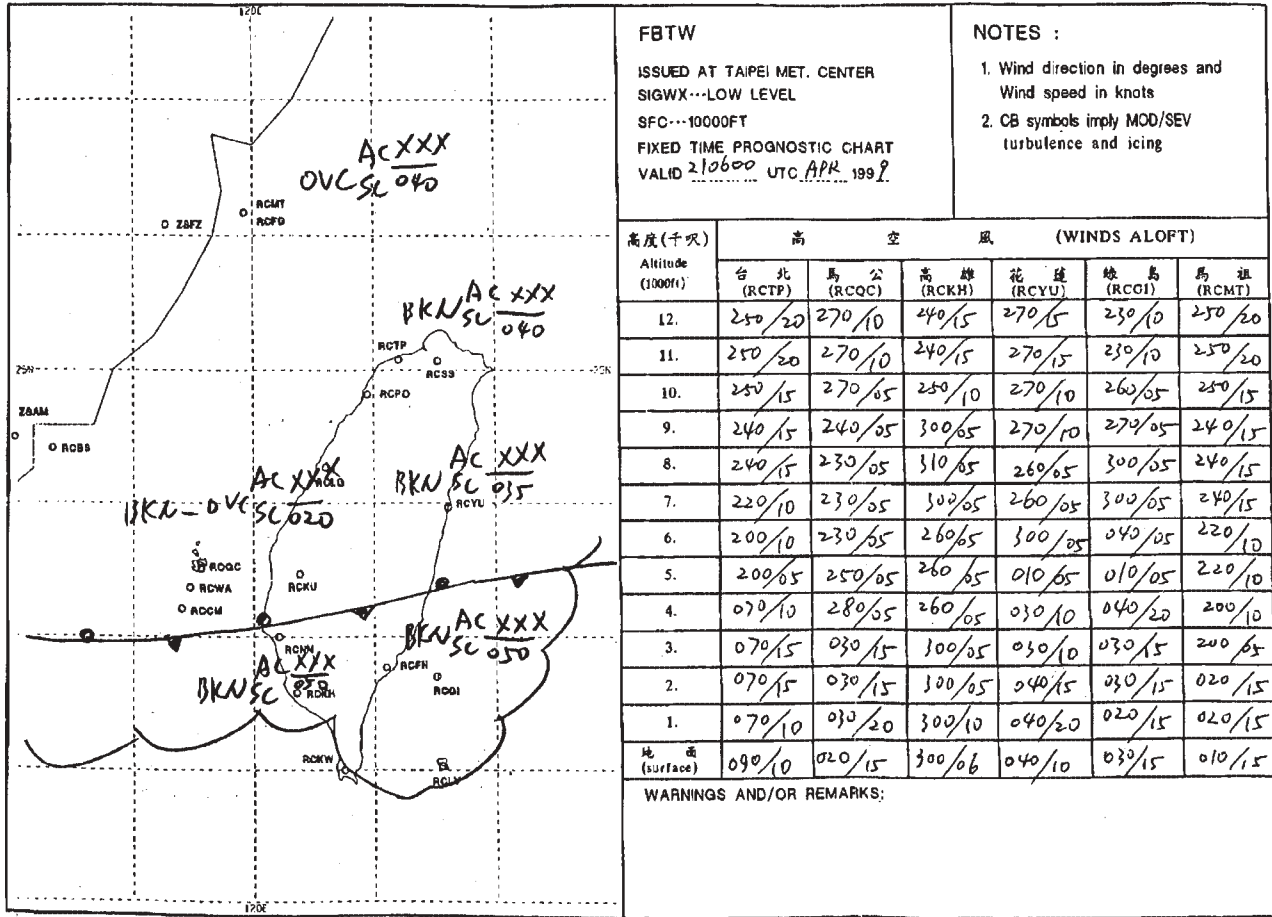 120E
AC XXX
OVC SC 040
RCMT
ZSFZ
RCFG
BKN AC XXX
SC 040
RCTP
RCSS
25N
25N
RCPO
ZSAM
RCBS
AC XXX
BKN-OVC SC 020
BKN AC XXX
SC 035
RCYU
RCQC
RCWA
RCKU
RCCM
BKN AC XXX
SC 050
RCNN
RCFN
AC XXX
BKN SC 050
RCKH
RCGI
RCKW
RCLY
120E
FBTW
ISSUED AT TAIPEI MET. CENTER
SIGWX···LOW LEVEL
SFC···10000FT
FIXED TIME PROGNOSTIC CHART
VALID 210600 UTC APR 1999
NOTES :
1. Wind direction in degrees and
Wind speed in knots
2. CB symbols imply MOD/SEV
turbulence and icing
高度(千呎) 高 空 風 (WINDS ALOFT)
Altitude
(1000ft)
台 北 馬 公 高 雄 花 蓮 綠 島 馬 祖
(RCTP) (RCQC) (RCKH) (RCYU) (RCGI) (RCMT)
12. 250/20 270/10 240/15 270/15 230/10 250/20
11. 250/20 270/10 240/15 270/15 230/10 250/20
10. 250/15 270/05 250/10 270/10 260/05 250/15
9. 240/15 240/05 300/05 270/10 270/05 240/15
8. 240/15 230/05 310/05 260/05 300/05 240/15
7. 220/10 230/05 300/05 260/05 300/05 240/15
6. 200/10 230/05 260/05 300/05 040/05 220/10
5. 200/05 250/05 260/05 010/05 010/05 220/10
4. 070/10 280/05 260/05 030/10 040/20 200/10
3. 070/15 030/15 300/05 030/10 030/15 200/05
2. 070/15 030/15 300/05 040/15 030/15 020/15
1. 070/10 030/20 300/10 040/20 020/15 020/15
地 面
(surface) 090/10 020/15 300/06 040/10 030/15 010/15
WARNINGS AND/OR REMARKS: